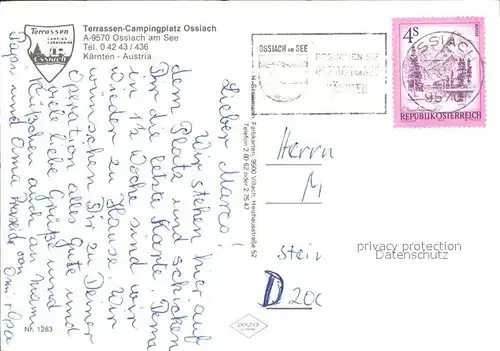 Terrassen
CAMPING
Ossiach
Terrassen-Campingplatz Ossiach
A-9570 Ossiach am See
Tel. 0 42 43 / 436
Kärnten - Austria
OSSIACH AM SEE
4S
REPUBLIK ÖSTERREICH
OSSIACH
Lieber Marco!
Wir stehen hier auf
dem Platz und schicken
Dir die letzte Karte. Denn
in 1½ Woche sind wir
wieder zu Hause. Wir
wünschen Dir zu Deiner
Operation alles gute und
viele liebe Grüße und
Küßchen auch an Mami
Papi und Oma von
Omi + Opa
Farbkarten, 9500 Villach, Heizhausstraße 52
Telefon 2 80 62 oder 2 75 47
Herrn
M
Stein
D 200
privacy protection
watermark
Nr. 1283